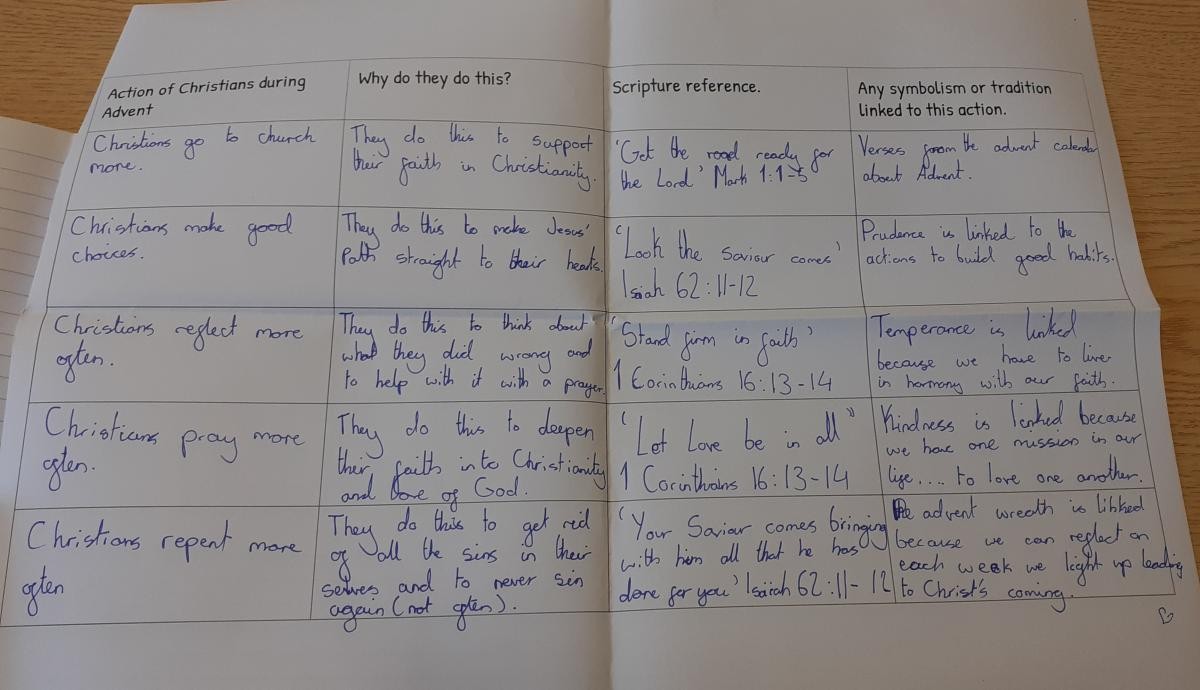 Action of Christians during
Advent
Why do they do this?
Scripture reference.
Any symbolism or tradition
linked to this action.
Christians go to church
more.
They do this to support
their faith in Christianity.
'Get the road ready for
the Lord' Mark 1:1-5
Verses from the advent calendar
about Advent.
Christians make good
choices.
They do this to make Jesus'
Path straight to their hearts.
'Look the Saviour comes'
Isiah 62:11-12
Prudence is linked to the
actions to build good habits.
Christians reflect more
often.
They do this to think about
what they did wrong and
to help with it with a prayer.
'Stand firm in faith'
1 Corinthians 16:13-14
Temperance is linked
because we have to live
in harmony with our faith.
Christians pray more
often.
They do this to deepen
their faith into Christianity
and love of God.
"Let Love be in all"
1 Corinthians 16:13-14
Kindness is linked because
we have one mission in our
life.... to love one another.
Christians repent more
often
They do this to get rid
of all the sins in their
selves and to never sin
again (not often).
'Your Saviar comes bringing
with him all that he has
done for you' Isaiah 62:11-12
The advent wreath is libked
because we can reflect on
each week we light up leading
to Christ's coming.